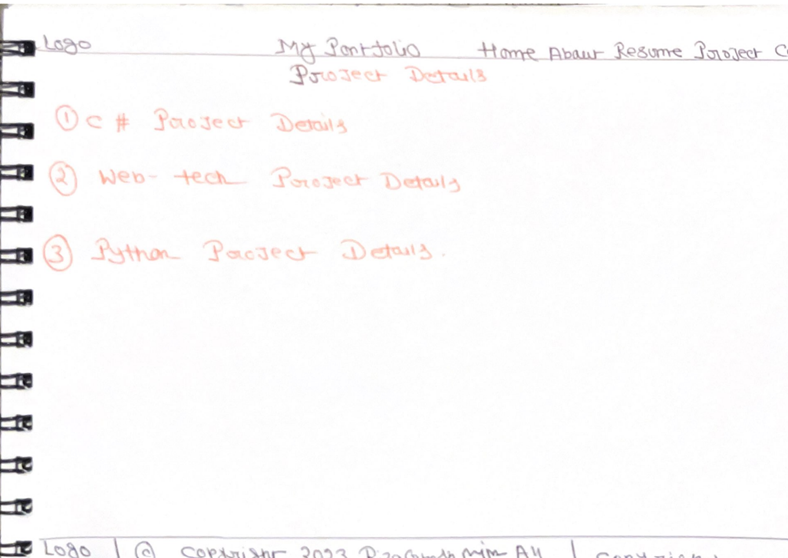 Logo My Portfolio Home About Resume Project
Project Details
① C # Project Details
② Web-tech Project Details
③ Python Project Details.
Logo | © Copyright 2023 All |